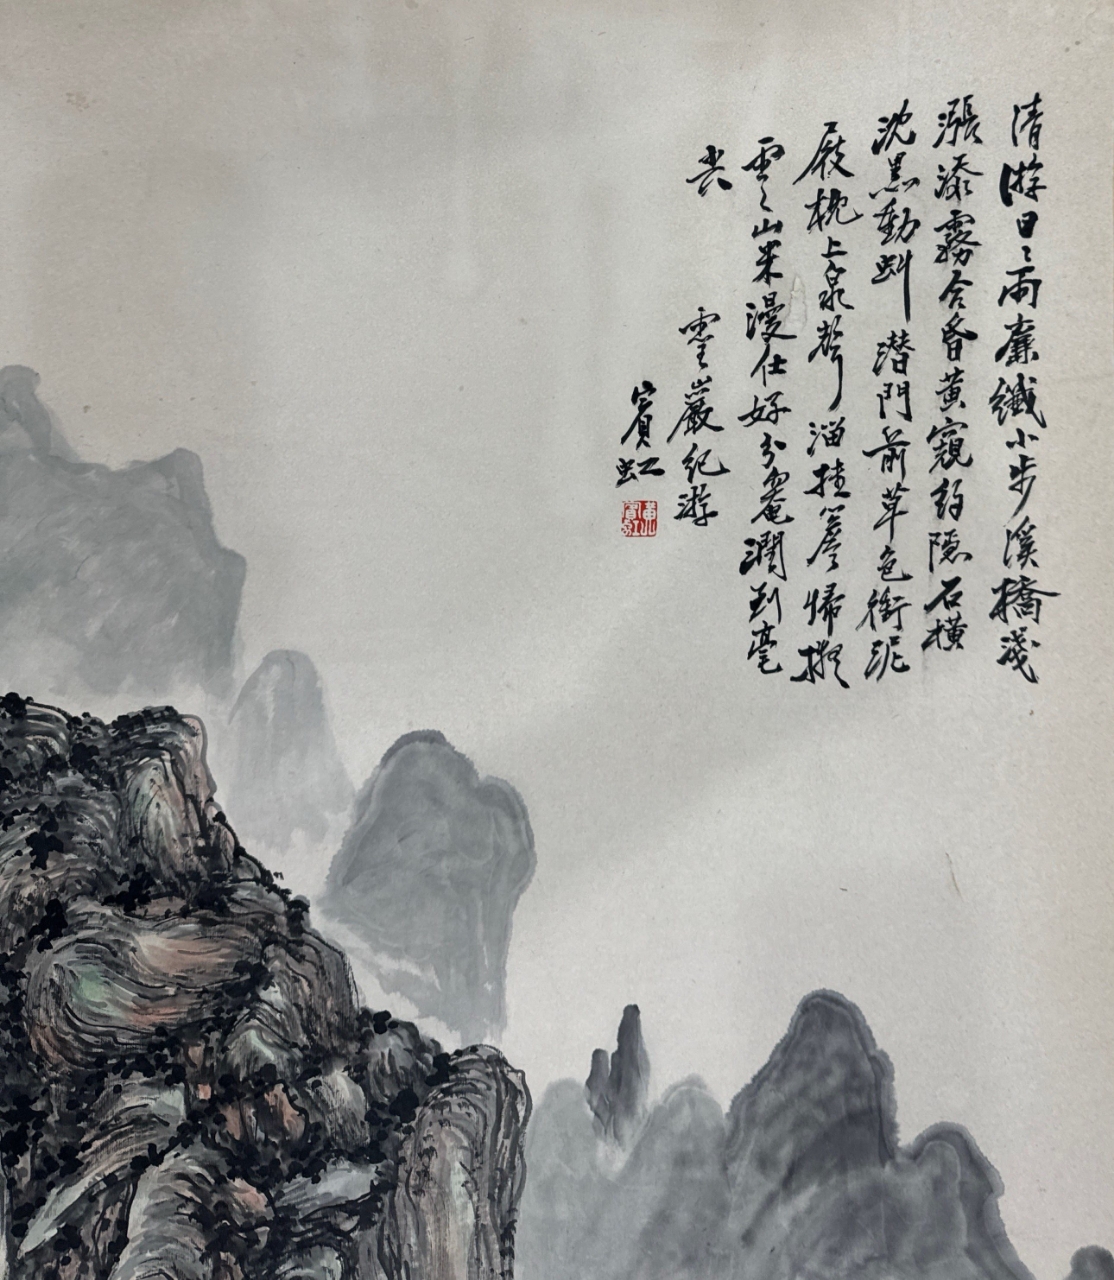 清游日〻雨廉纖小步溪橋淺
漲添霧合昏黃窺約隱石橫
沈黑動虯潛門前草色銜泥
屐枕上泉聲溜挂簷歸擬
雲〻山米漫仕好分奄潤到毫
尖
雲巖紀游
賓虹
黃賓虹